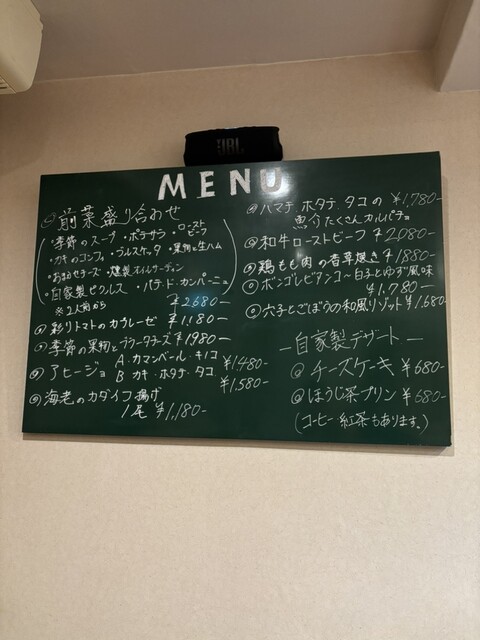 JBL
MENU
◎前菜盛り合わせ
・季節のスープ ・ポテサラ ・ローストビーフ
・カキのコンフィ ・ブルスケッタ ・果物と生ハム
・おまかせチーズ ・燻製オイルサーディン
・自家製ピクルス ・パテ・ド・カンパーニュ
※2人前から ¥2,680-
◎彩りトマトのカプレーゼ ¥1,180-
◎季節の果物とブラータチーズ ¥1980-
◎アヒージョ A.カマンベール・キノコ ¥1,480-
B カキ・ホタテ・タコ ¥1,580-
◎海老のカダイフ揚げ
1尾 ¥1,180-
◎ハマチ、ホタテ、タコの ¥1,780-
魚介たくさんカルパッチョ
◎和牛ローストビーフ ¥2,080-
◎鶏もも肉の香草焼き ¥1880-
◎ボンゴレビアンコ〜白子とゆず風味
¥1,780-
◎穴子とごぼうの和風リゾット ¥1,680-
―自家製デザート―
◎チーズケーキ ¥680-
◎ほうじ茶プリン ¥680-
(コーヒー 紅茶もあります。)